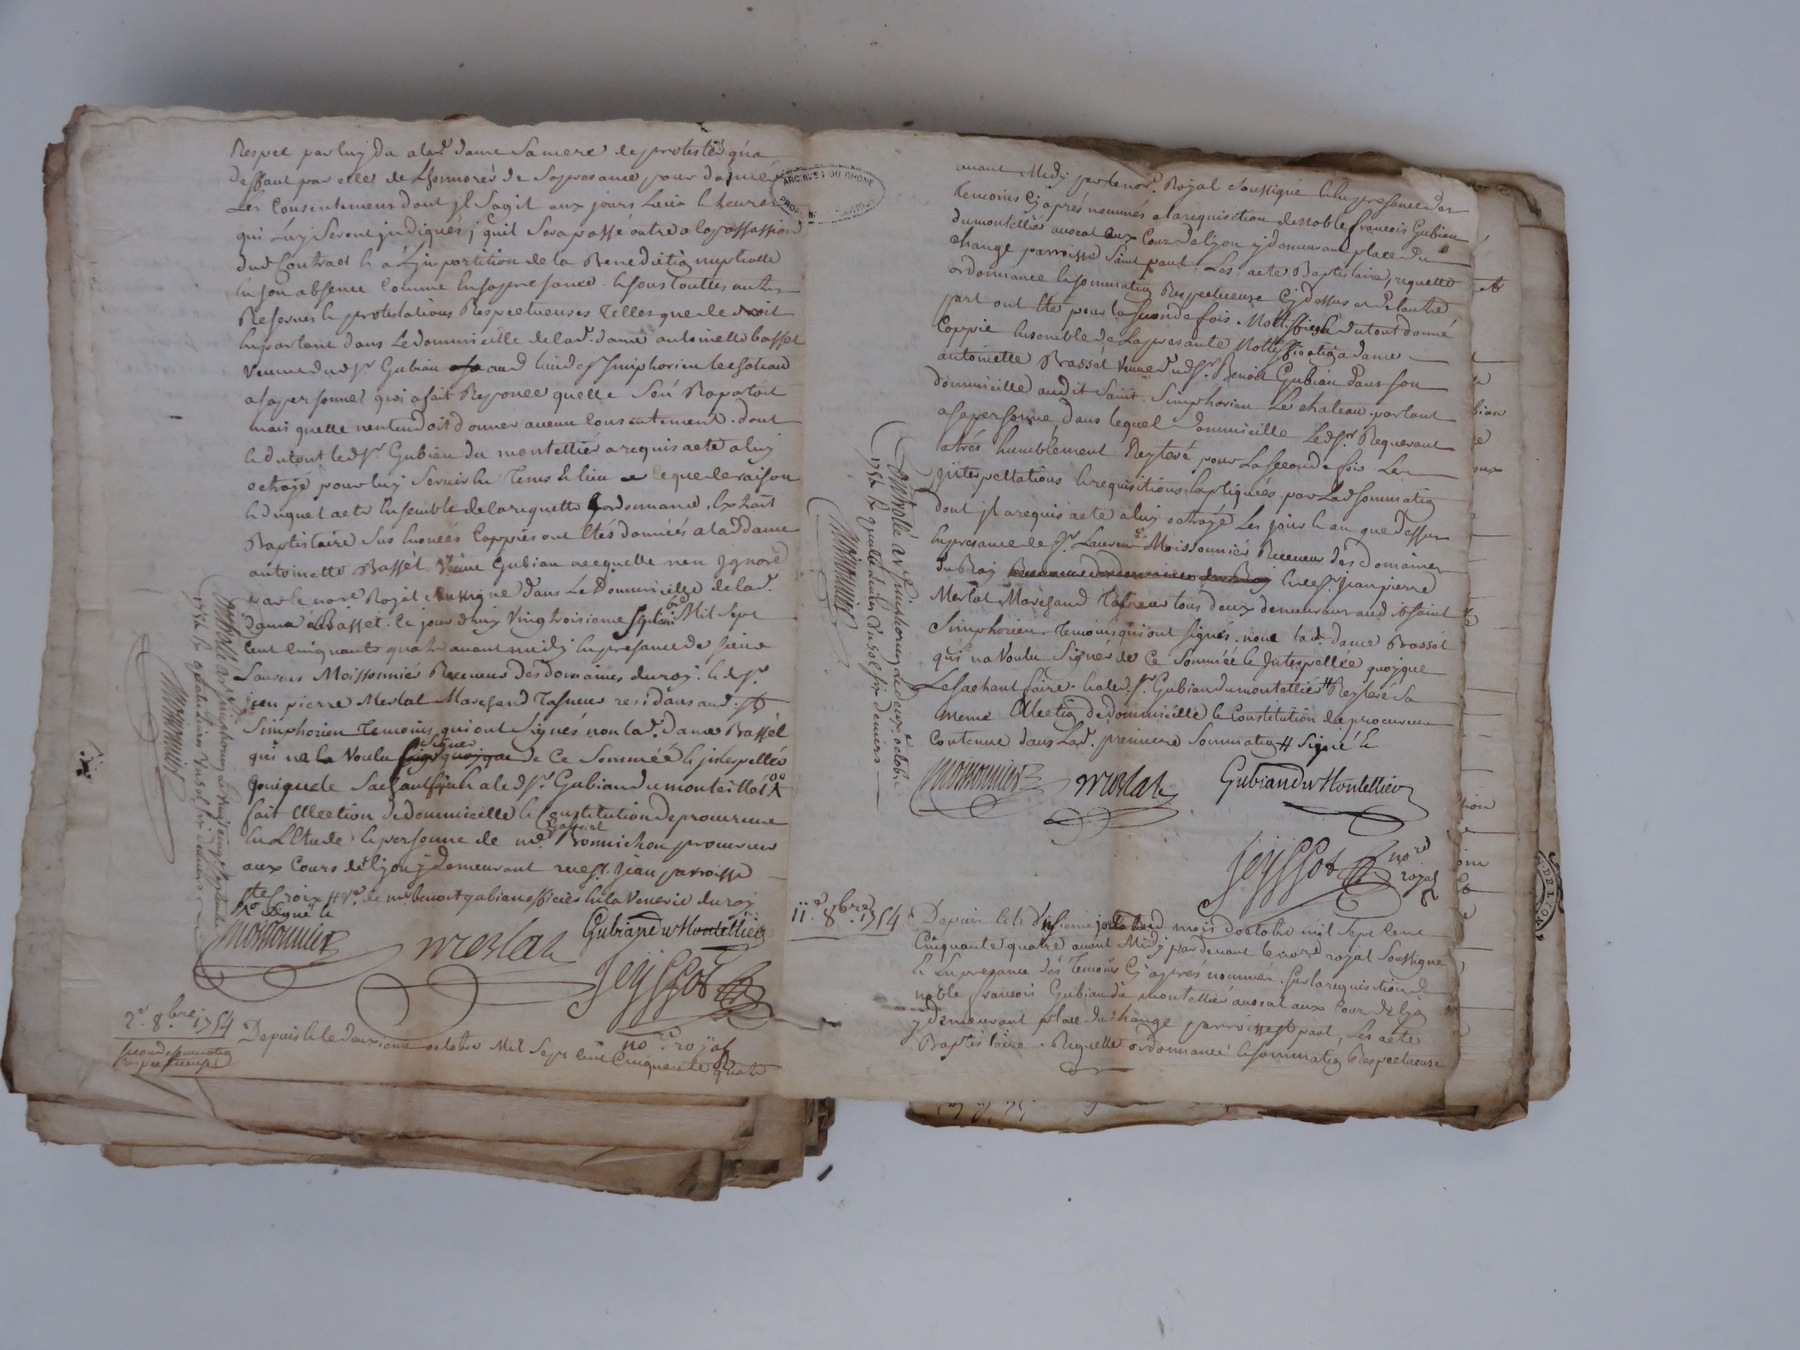 Respec par luy du a lad. dame sa mere de protester qua
deffaut par elle de Lhonnorér de sa presance pour donner
Les Consentemens dont jl sagit aux jours Lieu & heure
qui Luy seront jndiqués, quil sera passé outre a la passassion
dud Contract & a Limpartition de la Benediction nuptialle
En son absence Comme En sa presance. & sous touttes autres
Reserves & protestations Respectueuses Telles que de droit
En parlant dans Le dommicille de lad. dame antoinette basset
Veuve dud sr. Gubian aud lieu de st simphorien le chateau
a sa personne qui a fait Reponce quelle sen Raportoit
mais quelle nentendoit donner aucun Consentement. dont
& du tout led sr. Gubian du montellier a requis acte a luy
octroyé pour luy servir En Tems & lieu ce que de raison
& duquel acte Ensemble de la requette & ordonnance, Extrait
Baptistaire sus Enoncés Coppies ont Etés données a lad dame
antoinette Bassét Veuve Gubian a ce quelle nen Jgnore
par le nore Royal soussigné dans Le Dommicille de lad.
dame Basset. Ce jourdhuy Vingtroisieme septembre Mil sept
Cent Cinquante quatre avant midy En presance de sieur
Laurens Moissonnier Receveur des domaines du roy. & de sr.
jean pierre Merlat Marchand Tafneur residans aud. st
simphorien Temoins qui ont signés non lad. dame Bassét
qui ne la Voulu signer de Ce sommée & jnterpellée
quoique le sachant faire & a led sr. Gubian du montellier
fait Ellection de dommicille & Constitution de procureur
En L'Etude & personne de me. gabriel Bonnichon procureur
aux Cours de lyon y demeurant rue st. jean parroisse
ste Croix
de me benoit gubian officier En la Venerie du roy
signé &
Moissonnier Merlat Gubian du Montellier
Jeyssot
nore royal
2e. 8bre 1754
seconde sommation
respectueuse
Depuis & le deuxieme octobre Mil Sept Cent Cinquante quatre
Controllé a st simphorien le vingt sept septembre
1754
Moissonnier
avant Midy par le nore. Royal soussigné & En presance des
temoins Cy après nommés a la requisition de noble francois Gubian
du montellier avocat aux Cour de lyon y demeurant place du
change parroisse saint paul. Les acte Baptistaire, requette
ordonnance & sommation Respectueuse Cy dessus et de lautre
part ont Eté pour la seconde fois. Nottiffiés & du tout donné
Coppie Ensemble de la presante Nottiffication a dame
antoinette Bassét Veuve dud sr. Benoit Gubian dans son
dommicille audit saint simphorien Le chateau. parlant
a sa personne, dans lequel Dommicille Led sr. Requerant
a trés humblement Reyteré pour La seconde fois Les
jnterpellations & requisitions Expliquées par lad sommation
dont jl a requis acte a luy octroyé Les jour & an que dessus
En presance de sr. Laurens Moissonnier Receveur des domaines
du Roy & de sr. jean pierre
Merlat Marchand Tafneur tous deux demeurans aud st saint
simphorien. Temoins qui ont signés. none lad. dame Bassét
qui na Voulu signer de Ce sommée & jnterpellée quoyque
Le sachant faire. & a led. sr. Gubian du montellier Reyteré sa
meme Ellection de dommicille & Constitution de procureur
Contenue dans Lad. premiere sommation signé &
Moissonnier Merlat Gubian du Montellier
Jeyssot nore
royal
Controllé a st simphorien le deux octobre
1754
Moissonnier
11e 8bre 1754
Depuis & le onsieme jour dud mois doctobre mil Sept Cent
Cinquante quatre avant Midy par devant le nore royal soussigné
& En presance des Temoins Cy après nommés. sur la requisition de
noble francois Gubian du montellier avocat aux Cour de lyon
y demeurant place du change parroisse st paul, Les acte
Baptistaire. Requette ordonnance & sommation Respectueuse